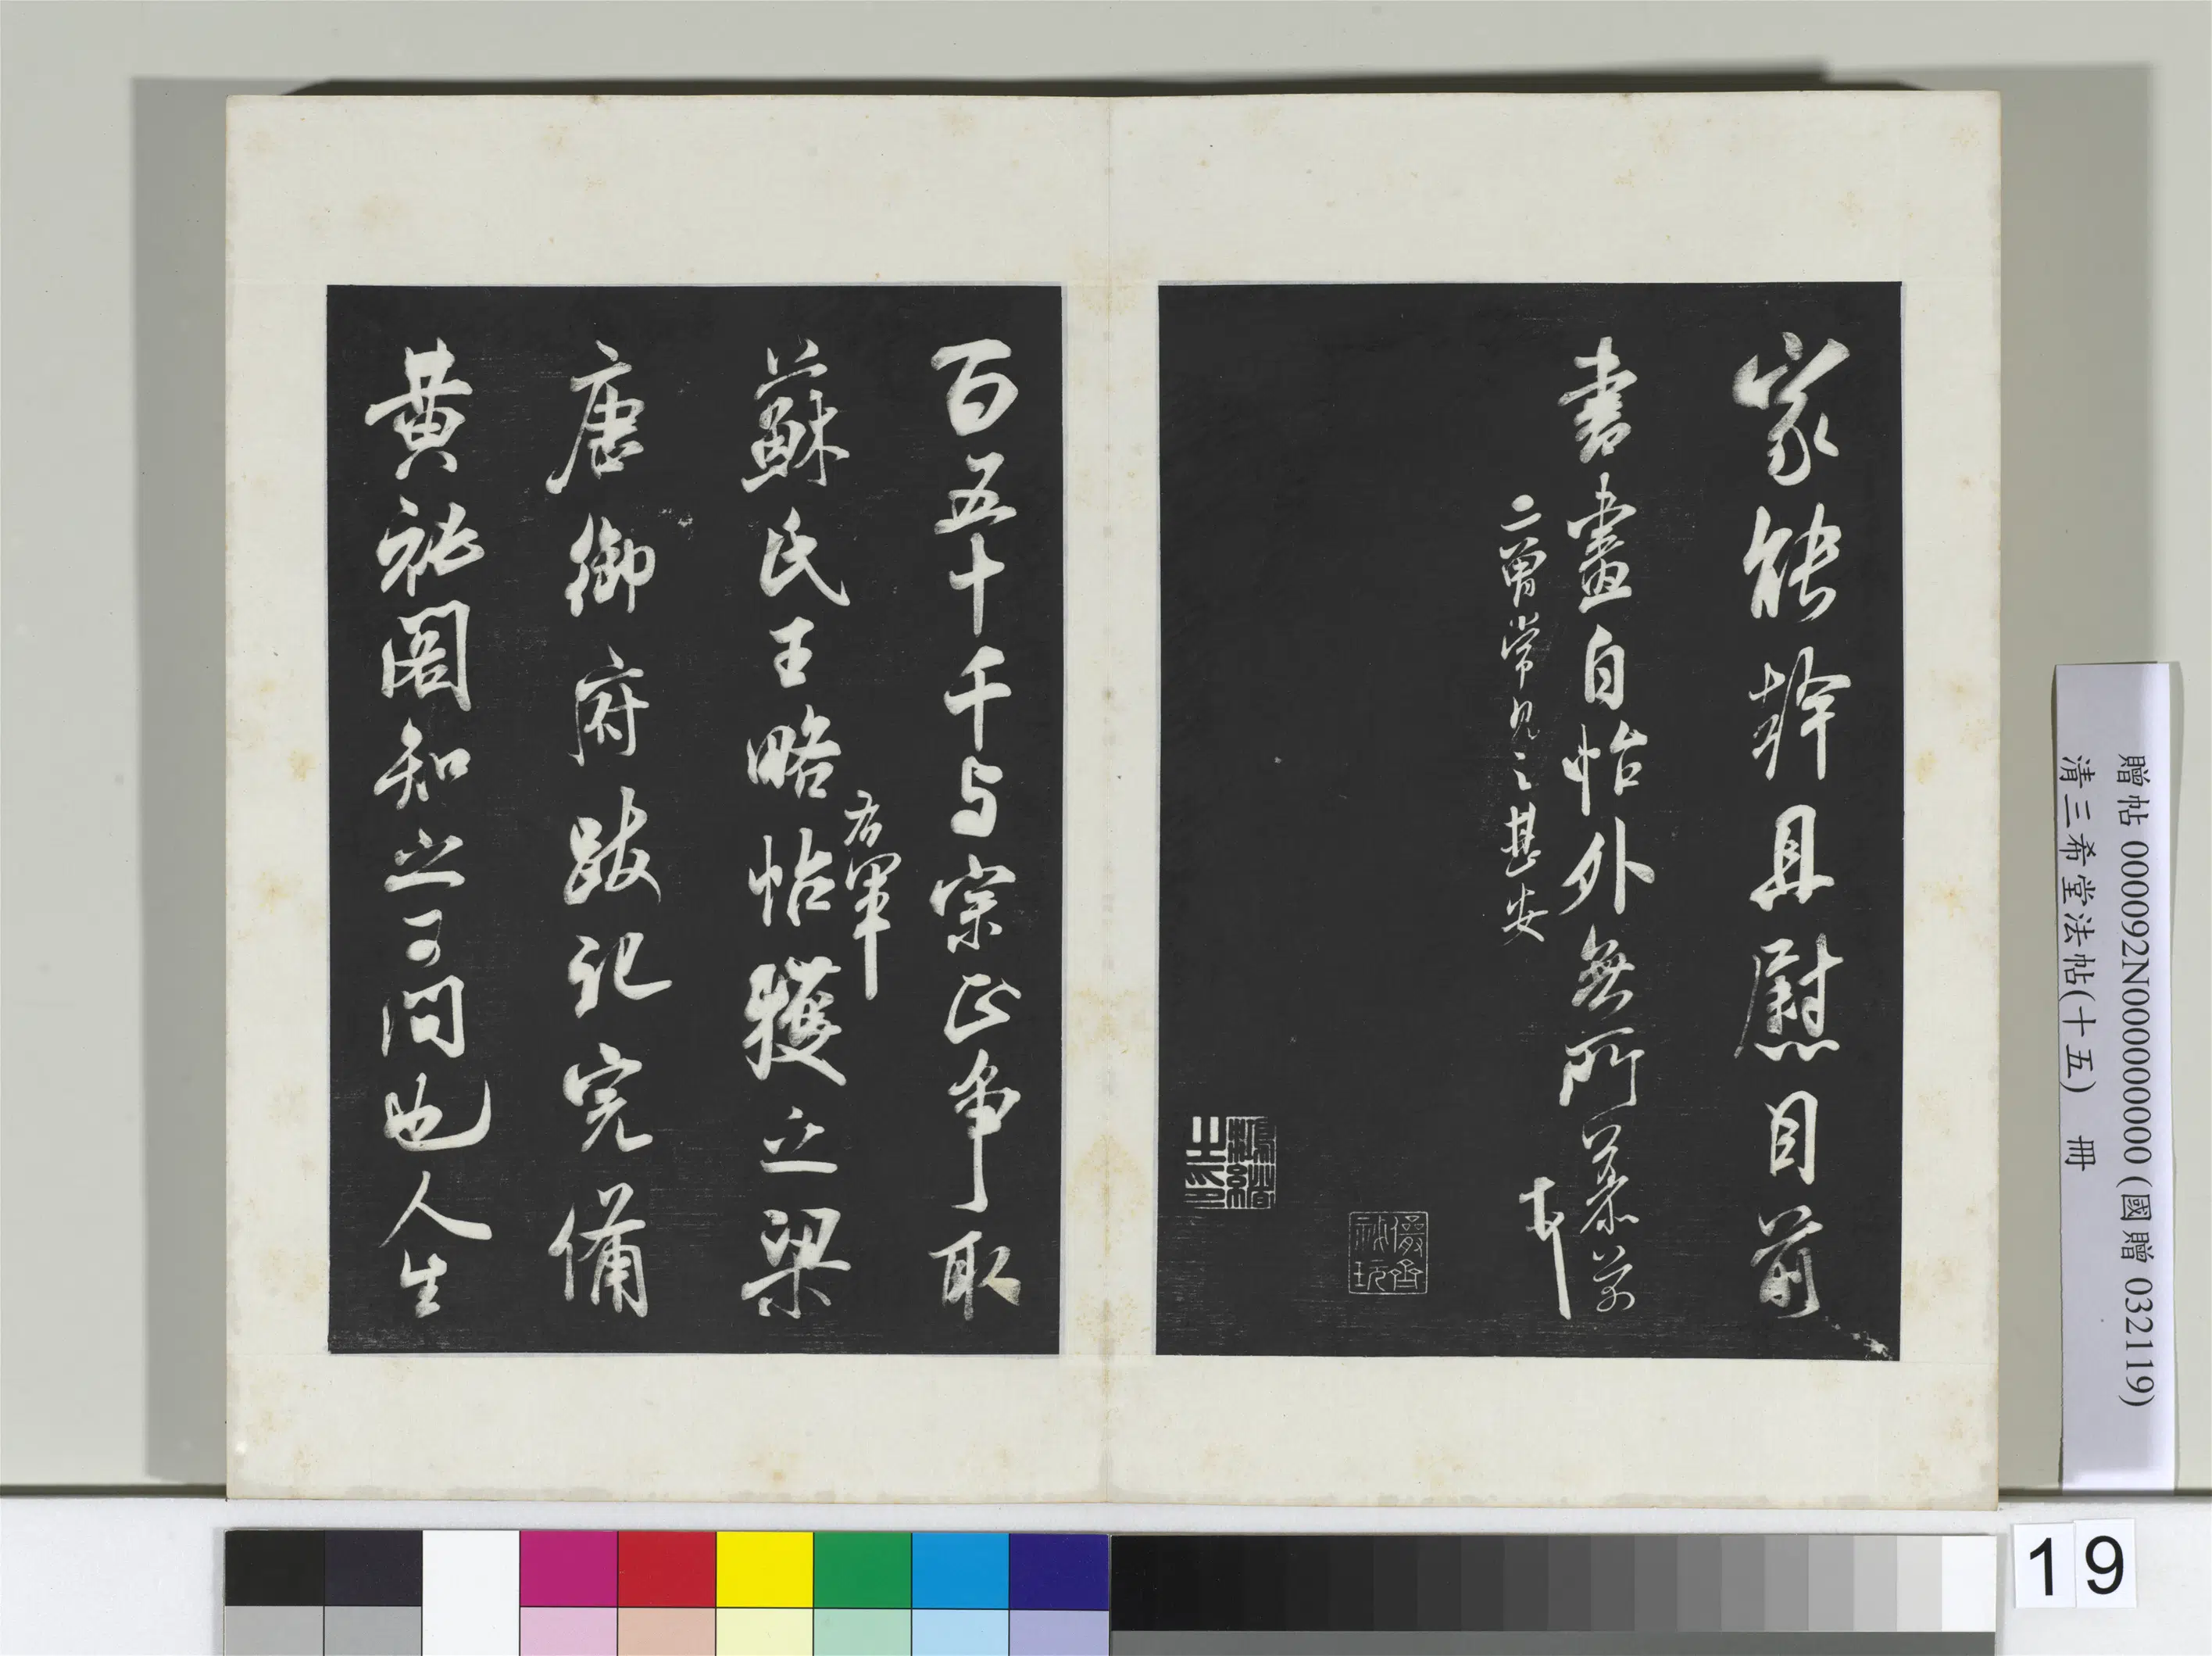 家能幹且慰目前
書畫自怡外無所慕芾
二曾常見之甚安
百五十千与宗正争取
蘇氏王略帖獲之梁
右軍
唐御府跋記完備
黄秘閣知之可問也人生
儼齋
秘玩
贈帖 000092N000000000 (國贈 032119)
清三希堂法帖(十五) 冊
19